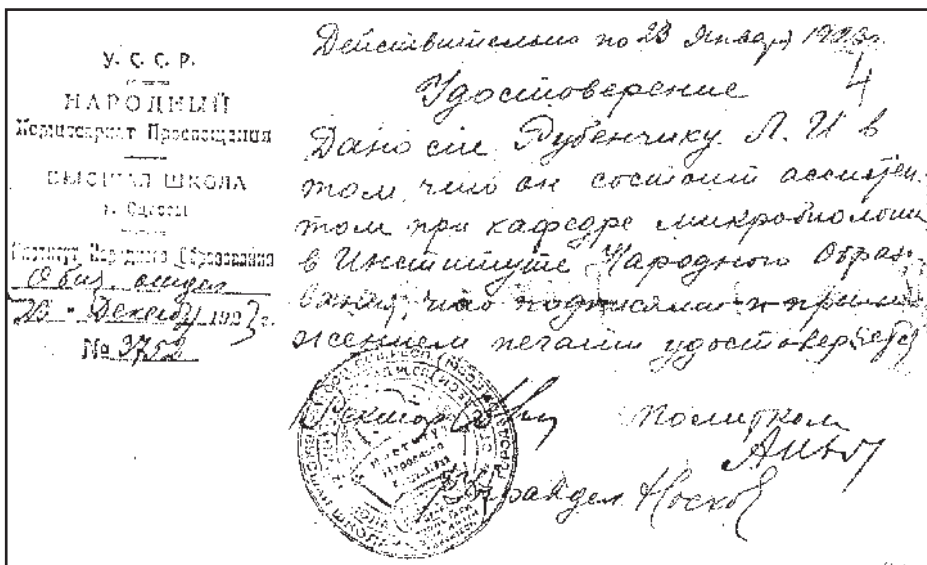 У. С. С. Р.
НАРОДНЫЙ
Комиссариат Просвещения
ВЫСШАЯ ШКОЛА
г. Одессы
Институт Народного Образования
Общ. отдел
Декабря 1923 г.
№ 3752
Действительно по 23 Января 192 г.
4
Удостоверение
Дано сие Рубенчику Л. И в
том, что он состоит ассистен-
том при кафедре микробиологии
в Институте Народного Образо-
вания, что подписями и прило-
жением печати удостоверяется
Ректор
Политком
Управдел